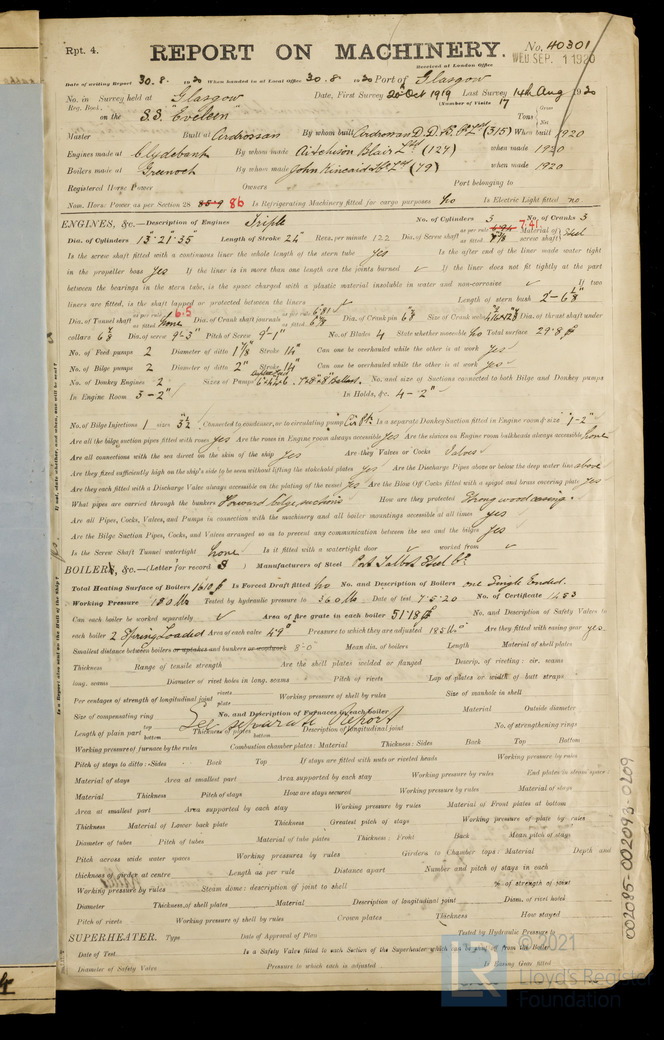 Rpt. 4.
REPORT ON MACHINERY.
No. 40301
Received at London Office
WED SEP. 1 1920
Date of writing Report 30. 8. 1920 When handed in at Local Office 30. 8 1920 Port of Glasgow
No. in Reg. Book. Survey held at Glasgow Date, First Survey 20th Oct 1919 Last Survey 14th Aug 1920
(Number of Visits 17
on the S.S. "Eveleen" Tons { Gross Net
Master Built at Ardrossan By whom built Ardrossan D. D. & Ltd (315) When built 1920
Engines made at Clydebank By whom made Aitchison Blair Ltd (127) when made 1920
Boilers made at Greenock By whom made John Kincaid & Co Ltd (79) when made 1920
Registered Horse Power Owners Port belonging to
Nom. Horse Power as per Section 28 86 Is Refrigerating Machinery fitted for cargo purposes No Is Electric Light fitted no
ENGINES, &c.—Description of Engines Triple No. of Cylinders 3 No. of Cranks 3
Dia. of Cylinders 13"-21"-35" Length of Stroke 24" Revs. per minute 122 Dia. of Screw shaft as per rule 7.41 as fitted 7 7/8 Material of screw shaft Steel
Is the screw shaft fitted with a continuous liner the whole length of the stern tube yes Is the after end of the liner made water tight
in the propeller boss yes If the liner is in more than one length are the joints burned ✓ If the liner does not fit tightly at the part
between the bearings in the stern tube, is the space charged with a plastic material insoluble in water and non-corrosive ✓ If two
liners are fitted, is the shaft lapped or protected between the liners ✓ Length of stern bush 2'-6 1/8"
Dia. of Tunnel shaft as per rule 6.5 as fitted none Dia. of Crank shaft journals as per rule 6.81 as fitted 6 7/8 Dia. of Crank pin 6 7/8 Size of Crank webs Dia. of thrust shaft under
collars 6 7/8 Dia. of screw 9'-3" Pitch of Screw 9'-1" No. of Blades 4 State whether moveable No Total surface 29.8 ▯'
No. of Feed pumps 2 Diameter of ditto 1 7/8" Stroke 14" Can one be overhauled while the other is at work yes
No. of Bilge pumps 2 Diameter of ditto 2" Stroke 14" Can one be overhauled while the other is at work yes
No. of Donkey Engines 2 Sizes of Pumps No. and size of Suctions connected to both Bilge and Donkey pumps
In Engine Room 3-2" In Holds, &c. 4-2"
No. of Bilge Injections 1 sizes 3 1/2 Connected to condenser, or to circulating pump Is a separate Donkey Suction fitted in Engine room & size 1-2"
Are all the bilge suction pipes fitted with roses yes Are the roses in Engine room always accessible yes Are the sluices on Engine room bulkheads always accessible none
Are all connections with the sea direct on the skin of the ship yes Are they Valves or Cocks Valves
Are they fixed sufficiently high on the ship's side to be seen without lifting the stokehold plates yes Are the Discharge Pipes above or below the deep water line above
Are they each fitted with a Discharge Valve always accessible on the plating of the vessel yes Are the Blow Off Cocks fitted with a spigot and brass covering plate yes
What pipes are carried through the bunkers Forward bilge suctions How are they protected Strong wood casing.
Are all Pipes, Cocks, Valves, and Pumps in connection with the machinery and all boiler mountings accessible at all times yes
Are the Bilge Suction Pipes, Cocks and Valves arranged so as to prevent any communication between the sea and the bilges yes
Is the Screw Shaft Tunnel watertight none Is it fitted with a watertight door ✓ worked from ✓
BOILERS, &c.—(Letter for record S) Manufacturers of Steel Port Talbot Steel Co.
Total Heating Surface of Boilers 1610 Is Forced Draft fitted No No. and Description of Boilers one Single Ended.
Working Pressure 180 lbs Tested by hydraulic pressure to 360 lbs Date of test 7-5-20 No. of Certificate 1483
Can each boiler be worked separately ✓ Area of fire grate in each boiler 51.18 No. and Description of Safety Valves to
each boiler 2 Spring Loaded Area of each valve 4.9" Pressure to which they are adjusted 185 lbs Are they fitted with easing gear yes.
Smallest distance between boilers or uptakes and bunkers or woodwork 8"-0" Mean dia. of boilers Length Material of shell plates
Thickness Range of tensile strength Are the shell plates welded or flanged Descrip. of riveting: cir. seams
long. seams Diameter of rivet holes in long. seams Pitch of rivets Lap of plates or width of butt straps
Per centages of strength of longitudinal joint rivets plate Working pressure of shell by rules Size of manhole in shell
Size of compensating ring No. and Description of Furnaces in each boiler Material Outside diameter
See separate Report
Length of plain part top bottom Thickness of plates bottom Description of longitudinal joint No. of strengthening rings
Working pressure of furnace by the rules Combustion chamber plates: Material Thickness: Sides Back Top Bottom
Pitch of stays to ditto: Sides Back Top If stays are fitted with nuts or riveted heads Working pressure by rules
Material of stays Area at smallest part Area supported by each stay Working pressure by rules End plates in steam space:
Material Thickness Pitch of stays How are stays secured Working pressure by rules Material of stays
Area at smallest part Area supported by each stay Working pressure by rules Material of Front plates at bottom
Thickness Material of Lower back plate Thickness Greatest pitch of stays Working pressure of plate by rules
Diameter of tubes Pitch of tubes Material of tube plates Thickness: Front Back Mean pitch of stays
Pitch across wide water spaces Working pressures by rules Girders to Chamber tops: Material Depth and
thickness of girder at centre Length as per rule Distance apart Number and pitch of stays in each
Working pressure by rules Steam dome: description of joint to shell % of strength of joint
Diameter Thickness of shell plates Material Description of longitudinal joint Diam. of rivet holes
Pitch of rivets Working pressure of shell by rules Crown plates Thickness How stayed
SUPERHEATER. Type Date of Approval of Plan Tested by Hydraulic Pressure to
Date of Test Is a Safety Valve fitted to each Section of the Superheater which can be shut off from the Boiler
Diameter of Safety Valve Pressure to which each is adjusted Is Easing Gear fitted
002085-002093-0209
© 2021
Lloyd's Register
Foundation
LR